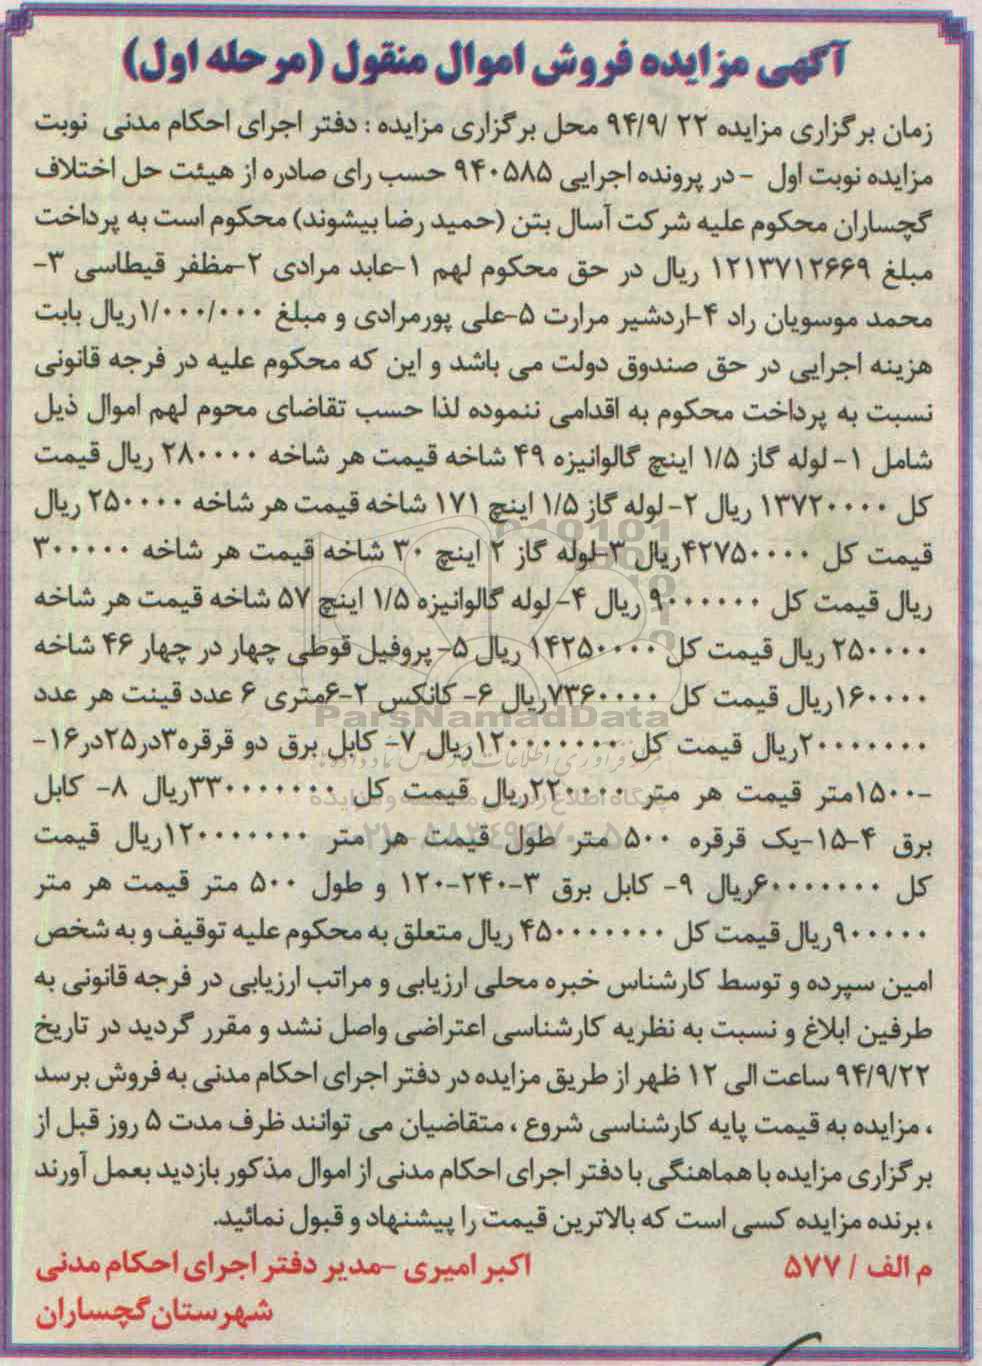 آگهی مزایده فروش اموال منقول (مرحله اول)
زمان برگزاری مزایده ۲۲ /۹۴/۹ محل برگزاری مزایده : دفتر اجرای احکام مدنی نوبت
مزایده نوبت اول - در پرونده اجرایی ۹۴۰۵۸۵ حسب رای صادره از هیئت حل اختلاف
گچساران محکوم علیه شرکت آسال بتن (حمید رضا بیشوند) محکوم است به پرداخت
مبلغ ۱۲۱۳۷۱۲۶۶۹ ریال در حق محکوم لهم ۱-عابد مرادی ۲-مظفر قیطاسی ۳-
محمد موسویان راد ۴-اردشیر مرارت ۵-علی پورمرادی و مبلغ ۱/۰۰۰/۰۰۰ریال بابت
هزینه اجرایی در حق صندوق دولت می باشد و این که محکوم علیه در فرجه قانونی
نسبت به پرداخت محکوم به اقدامی ننموده لذا حسب تقاضای محوم لهم اموال ذیل
شامل ۱- لوله گاز ۱/۵ اینچ گالوانیزه ۴۹ شاخه قیمت هر شاخه ۲۸۰۰۰۰ ریال قیمت
کل ۱۳۷۲۰۰۰۰ ریال ۲- لوله گاز ۱/۵ اینچ ۱۷۱ شاخه قیمت هر شاخه ۲۵۰۰۰۰ ریال
قیمت کل ۴۲۷۵۰۰۰۰ریال ۳-لوله گاز ۲ اینچ ۳۰ شاخه قیمت هر شاخه ۳۰۰۰۰۰
ریال قیمت کل ۹۰۰۰۰۰۰ ریال ۴- لوله گالوانیزه ۱/۵ اینچ ۵۷ شاخه قیمت هر شاخه
۲۵۰۰۰۰ ریال قیمت کل ۱۴۲۵۰۰۰۰ ریال ۵- پروفیل قوطی چهار در چهار ۴۶ شاخه
۱۶۰۰۰۰ریال قیمت کل ۷۳۶۰۰۰۰ریال ۶- کانکس ۲-۶متری ۶ عدد قینت هر عدد
۲۰۰۰۰۰۰۰ریال قیمت کل ۱۲۰۰۰۰۰۰۰ریال ۷- کابل برق دو قرقره۳در۲۵در۱۶-
-۱۵۰۰متر قیمت هر متر ۲۲۰۰۰۰ریال قیمت کل ۳۳۰۰۰۰۰۰۰ریال ۸- کابل
برق ۴-۱۵-یک قرقره ۵۰۰ متر طول قیمت هر متر ۱۲۰۰۰۰۰۰۰ریال قیمت
کل ۶۰۰۰۰۰۰۰ریال ۹- کابل برق ۳-۲۴۰-۱۲۰ و طول ۵۰۰ متر قیمت هر متر
۹۰۰۰۰۰ریال قیمت کل ۴۵۰۰۰۰۰۰۰ ریال متعلق به محکوم علیه توقیف و به شخص
امین سپرده و توسط کارشناس خبره محلی ارزیابی و مراتب ارزیابی در فرجه قانونی به
طرفین ابلاغ و نسبت به نظریه کارشناسی اعتراضی واصل نشد و مقرر گردید در تاریخ
۹۴/۹/۲۲ ساعت الی ۱۲ ظهر از طریق مزایده در دفتر اجرای احکام مدنی به فروش برسد
، مزایده به قیمت پایه کارشناسی شروع ، متقاضیان می توانند ظرف مدت ۵ روز قبل از
برگزاری مزایده با هماهنگی با دفتر اجرای احکام مدنی از اموال مذکور بازدید بعمل آورند
، برنده مزایده کسی است که بالاترین قیمت را پیشنهاد و قبول نمائید.
م الف / ۵۷۷ اکبر امیری -مدیر دفتر اجرای احکام مدنی
شهرستان گچساران
ParsNamadData